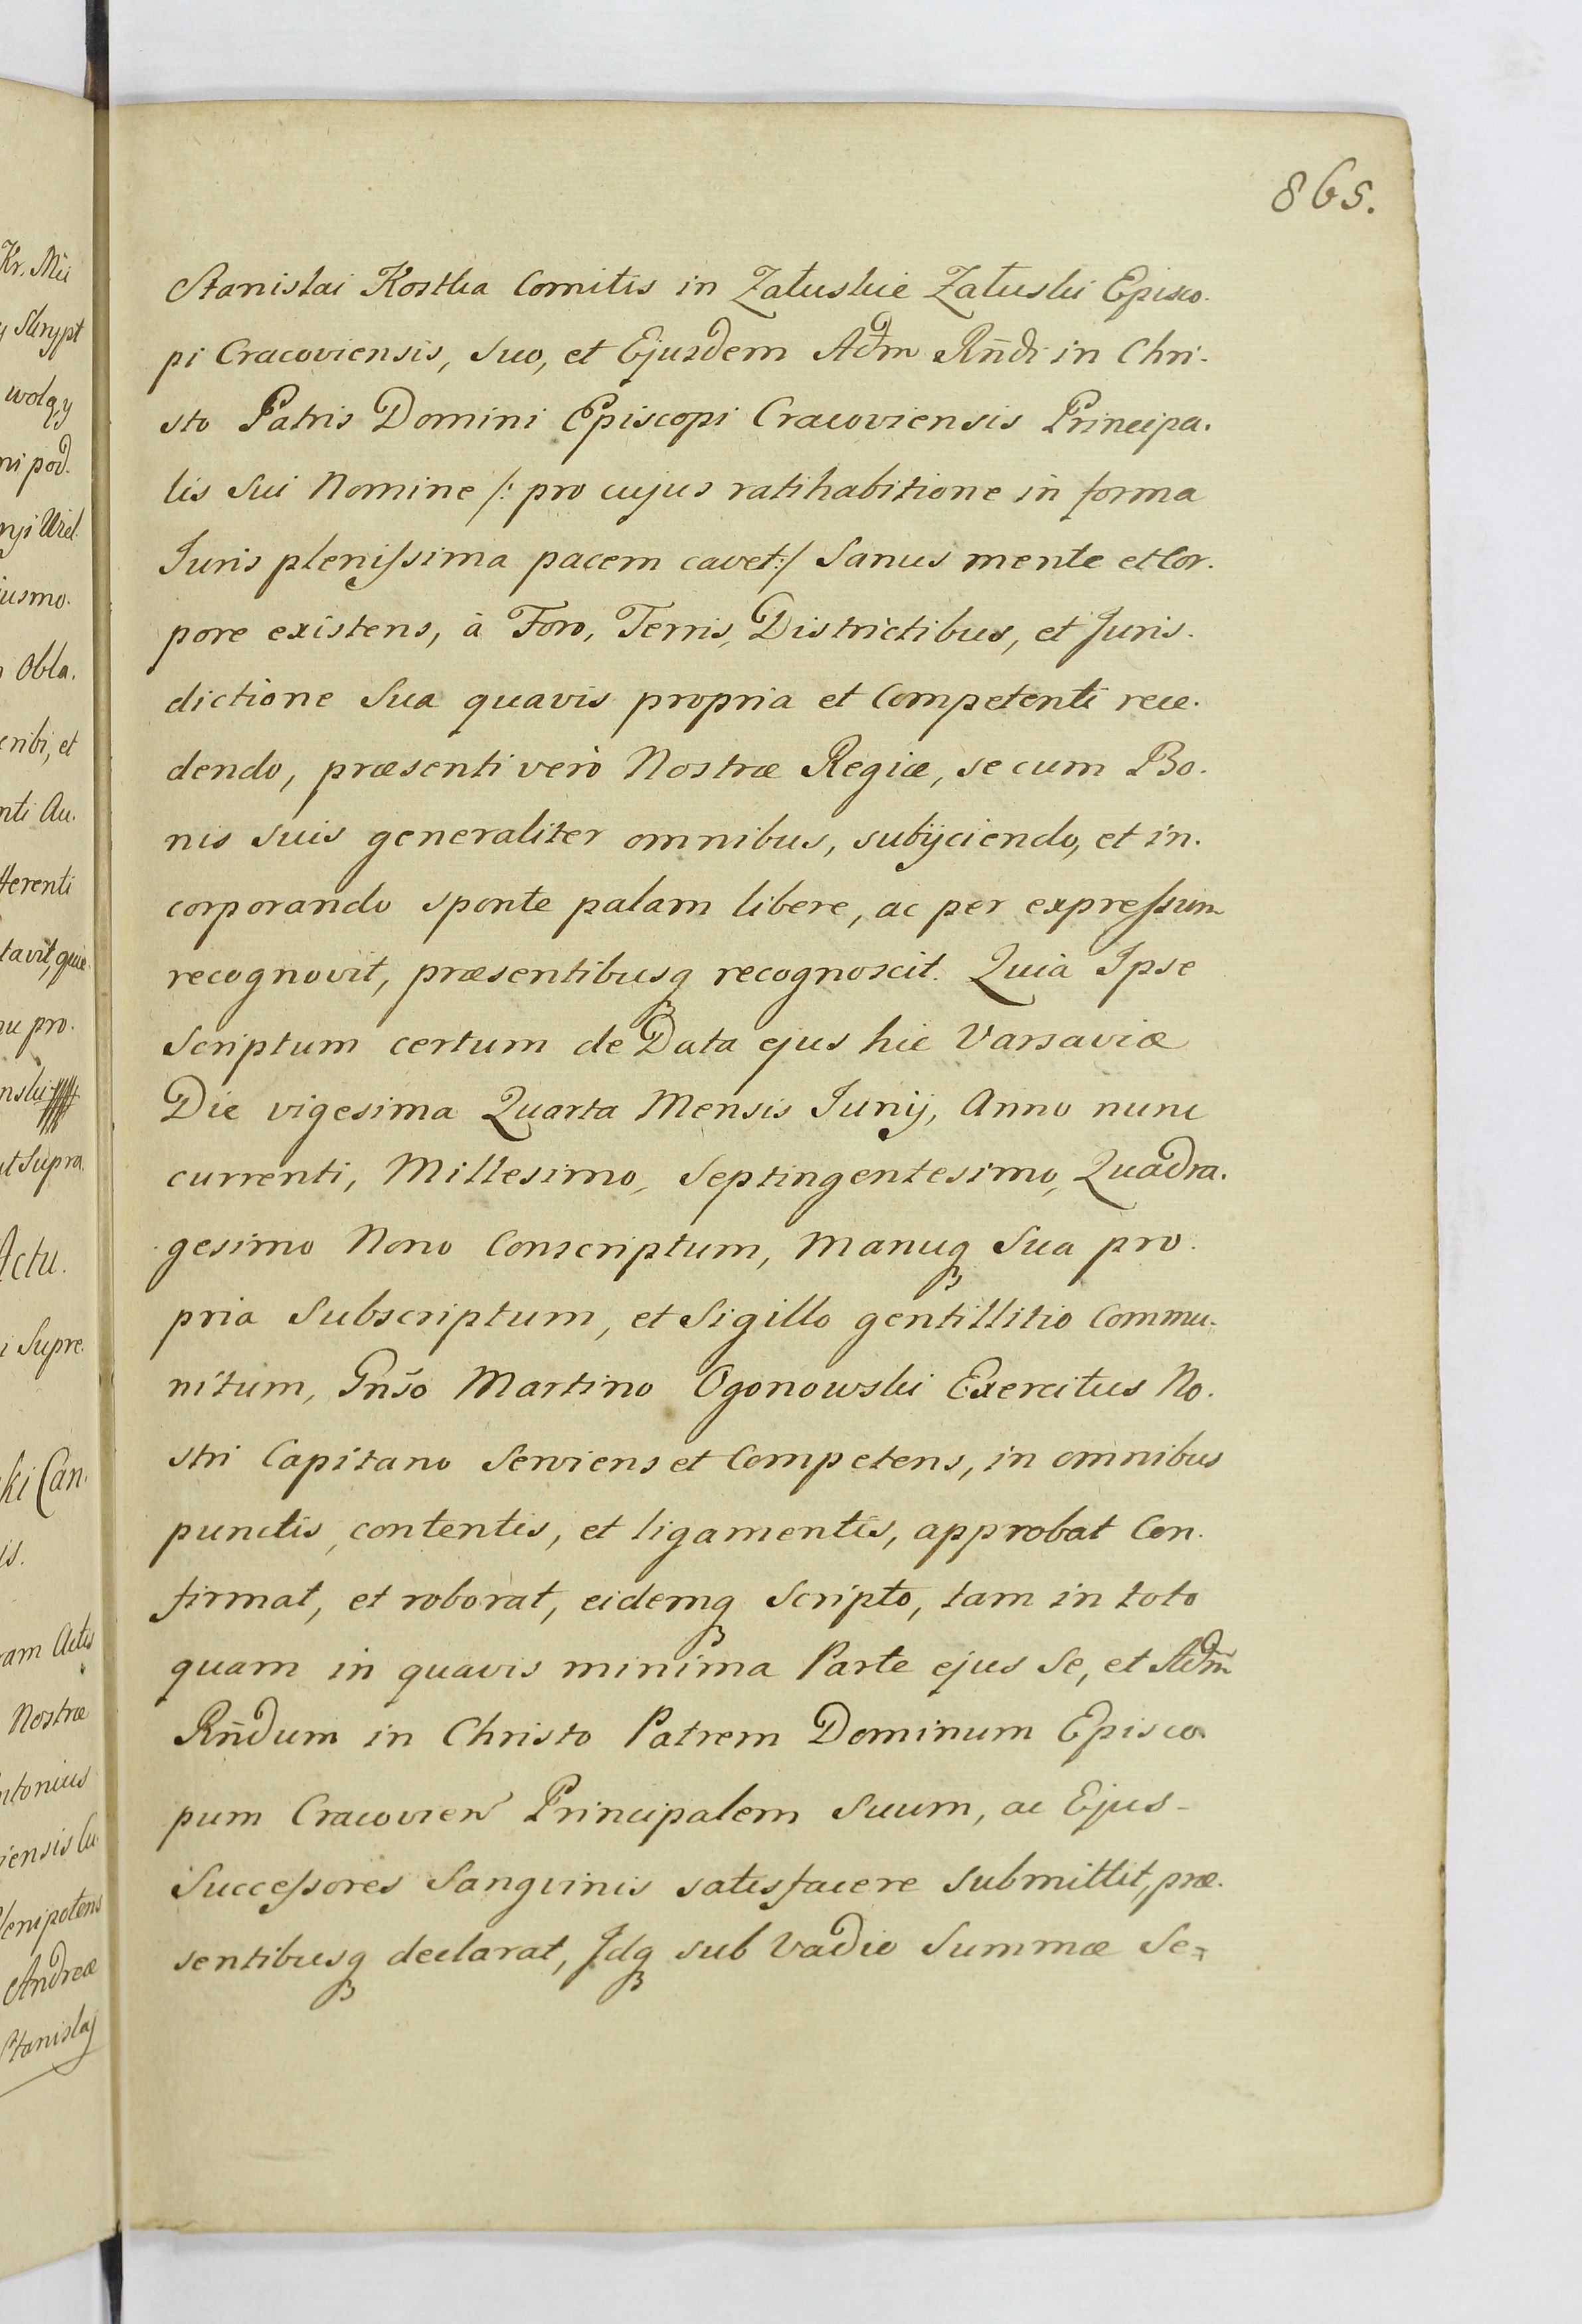 865.
Stanislai Kostka Comitis in Załuskie Załuski Episco.
pi Cracoviensis, suo, et Ejusdem Adm Rñdi in Chri.
sto Patris Domini Episcopi Cracoviensis Principa.
lis sui Nomine /: pro cujus ratihabitione in forma
Juris plenissima pacem cavet:/ Sanus mente et Cor.
pore existens, à Foro, Terris, Districtibus, et Juris.
dictione Sua quavis propria et Competenti rece.
dendo, præsenti verò Nostræ Regiæ, se cum Bo.
nis suis generaliter omnibus, subijciendo, et in.
corporando sponte palam libere, ac per expressum
recognovit, præsentibusq recognoscit. Quia Ipse
Scriptum certum de Data ejus hic Varsaviæ
Die vigesima Quarta Mensis Junij, Anno nunc
currenti, Millesimo, Septingentesimo, Quadra.
gesimo Nono Conscriptum, Manuq Sua pro.
pria Subscriptum, et Sigillo gentillitio Commu.
nitum, Gnso Martino Ogonowski Exercitus No.
stri Capitano Serviens et Competens, in omnibus
punctis, contentis, et ligamentis, approbat Con.
firmat, et roborat, eidemq Scripto, tam in toto
quam in quavis minima Parte ejus Se, et Adm̃
Rñdum in Christo Patrem Dominum Episco.
pum Cracovien Principalem Suum, ac Ejus-
Successores Sangvinis satisfacere submittit, præ.
sentibusq declarat, Idq sub Vadio Summæ Se=